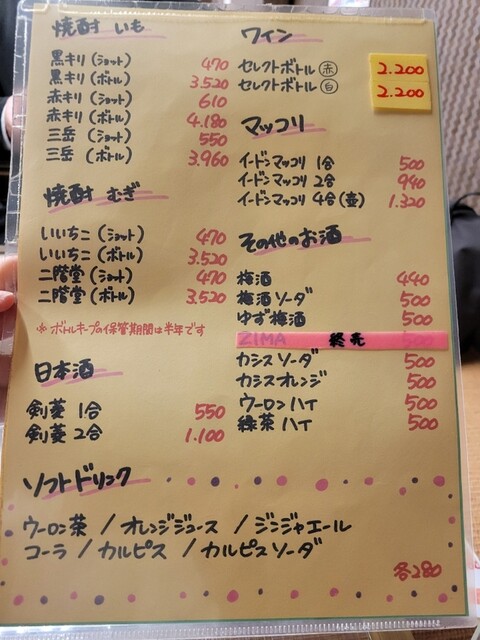 焼酎 いも
黒キリ (ショット) 470
黒キリ (ボトル) 3.520
赤キリ (ショット) 610
赤キリ (ボトル) 4.180
三岳 (ショット) 550
三岳 (ボトル) 3.960
焼酎 むぎ
いいちこ (ショット) 470
いいちこ (ボトル) 3.520
二階堂 (ショット) 470
二階堂 (ボトル) 3.520
※ ボトルキープの保管期間は半年です
日本酒
剣菱 1合 550
剣菱 2合 1.100
ワイン
セレクトボトル 赤 2.200
セレクトボトル 白 2.200
マッコリ
イードンマッコリ 1合 500
イードンマッコリ 2合 940
イードンマッコリ 4合(壷) 1.320
その他のお酒
梅酒 440
梅酒ソーダ 500
ゆず梅酒 500
ZIMA 終売 500
カシスソーダ 500
カシスオレンジ 500
ウーロンハイ 500
緑茶ハイ 500
ソフトドリンク
ウーロン茶 / オレンジジュース / ジンジャエール
コーラ / カルピス / カルピスソーダ
各280